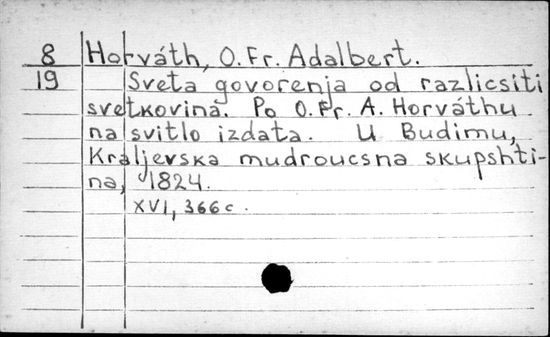 8 Horváth, O. Fr. Adalbert.
19 Sveta govorenja od razlicsiti
svetkovina. Po O. Fr. A. Horváthu
na svitlo izdata. U Budimu,
Kraljevska mudroucsna skupshti-
na, 1824.
XVI, 366 c.